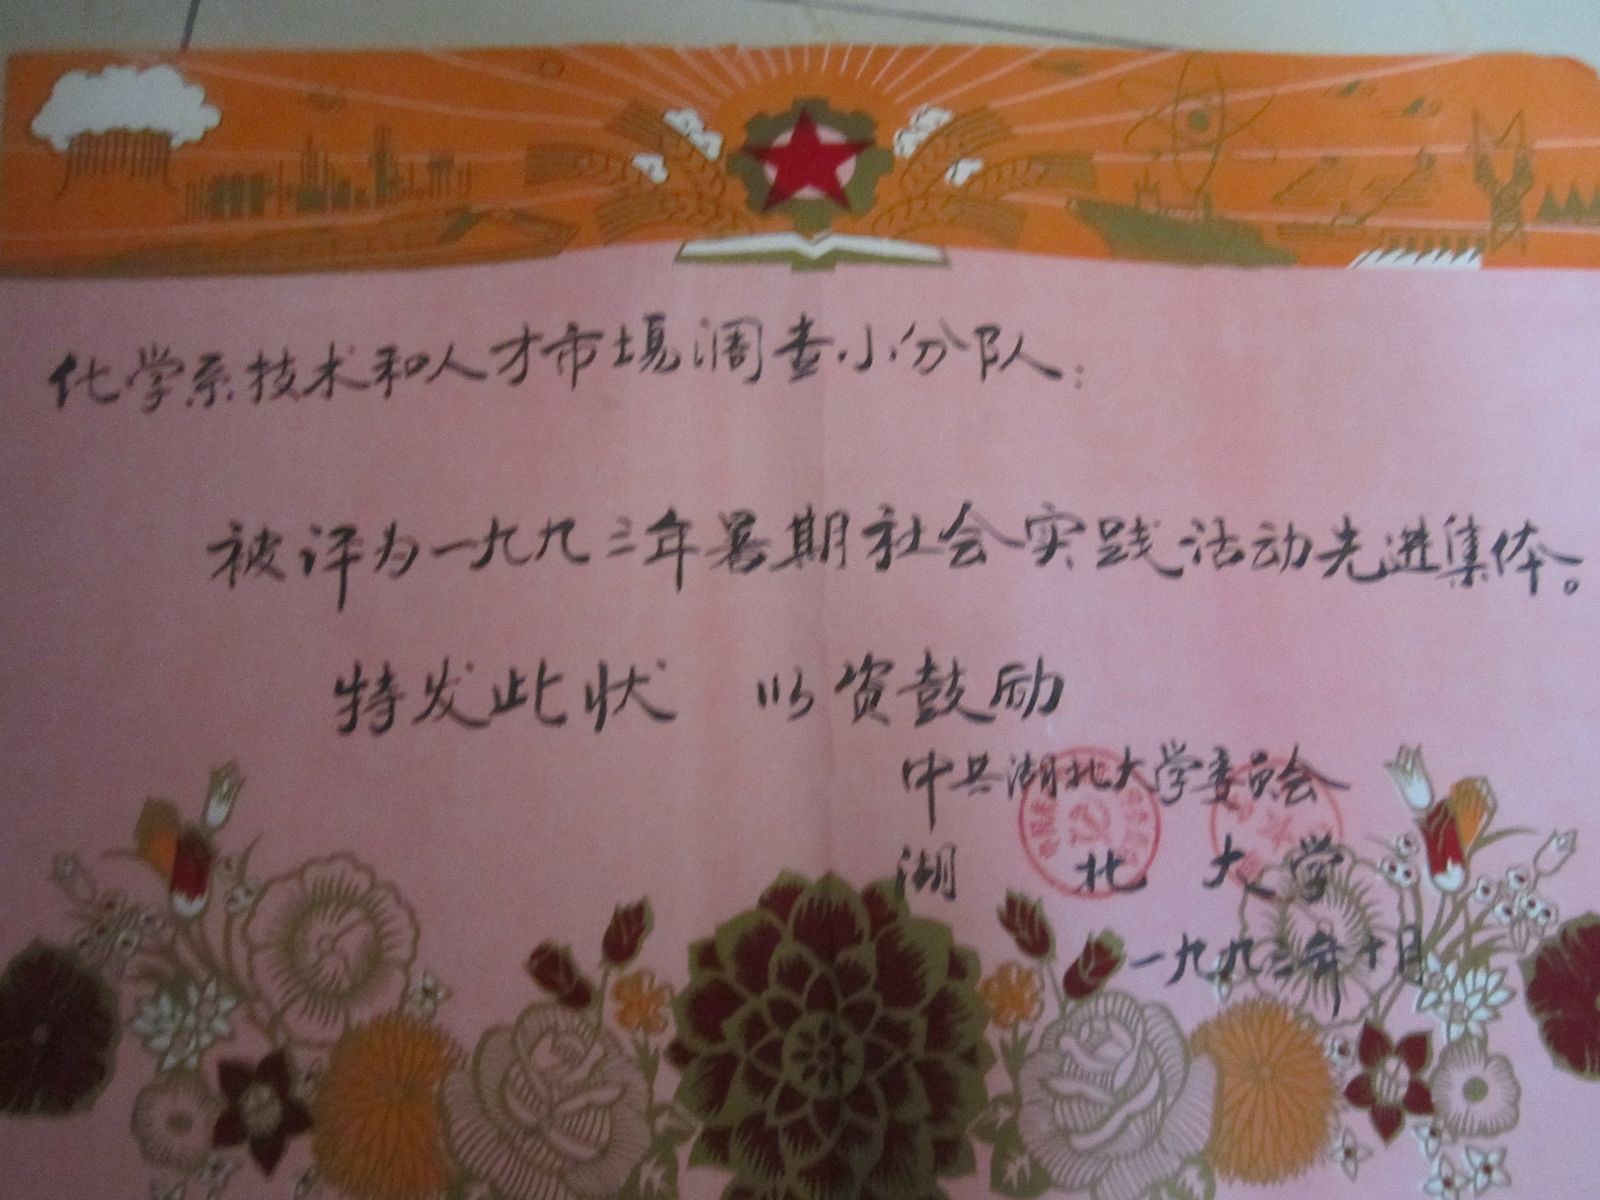 化学系技术和人才市场调查小分队：
被评为一九九三年暑期社会实践活动先进集体。
特发此状 以资鼓励
中共湖北大学委员会
湖北大学
一九九三年十月